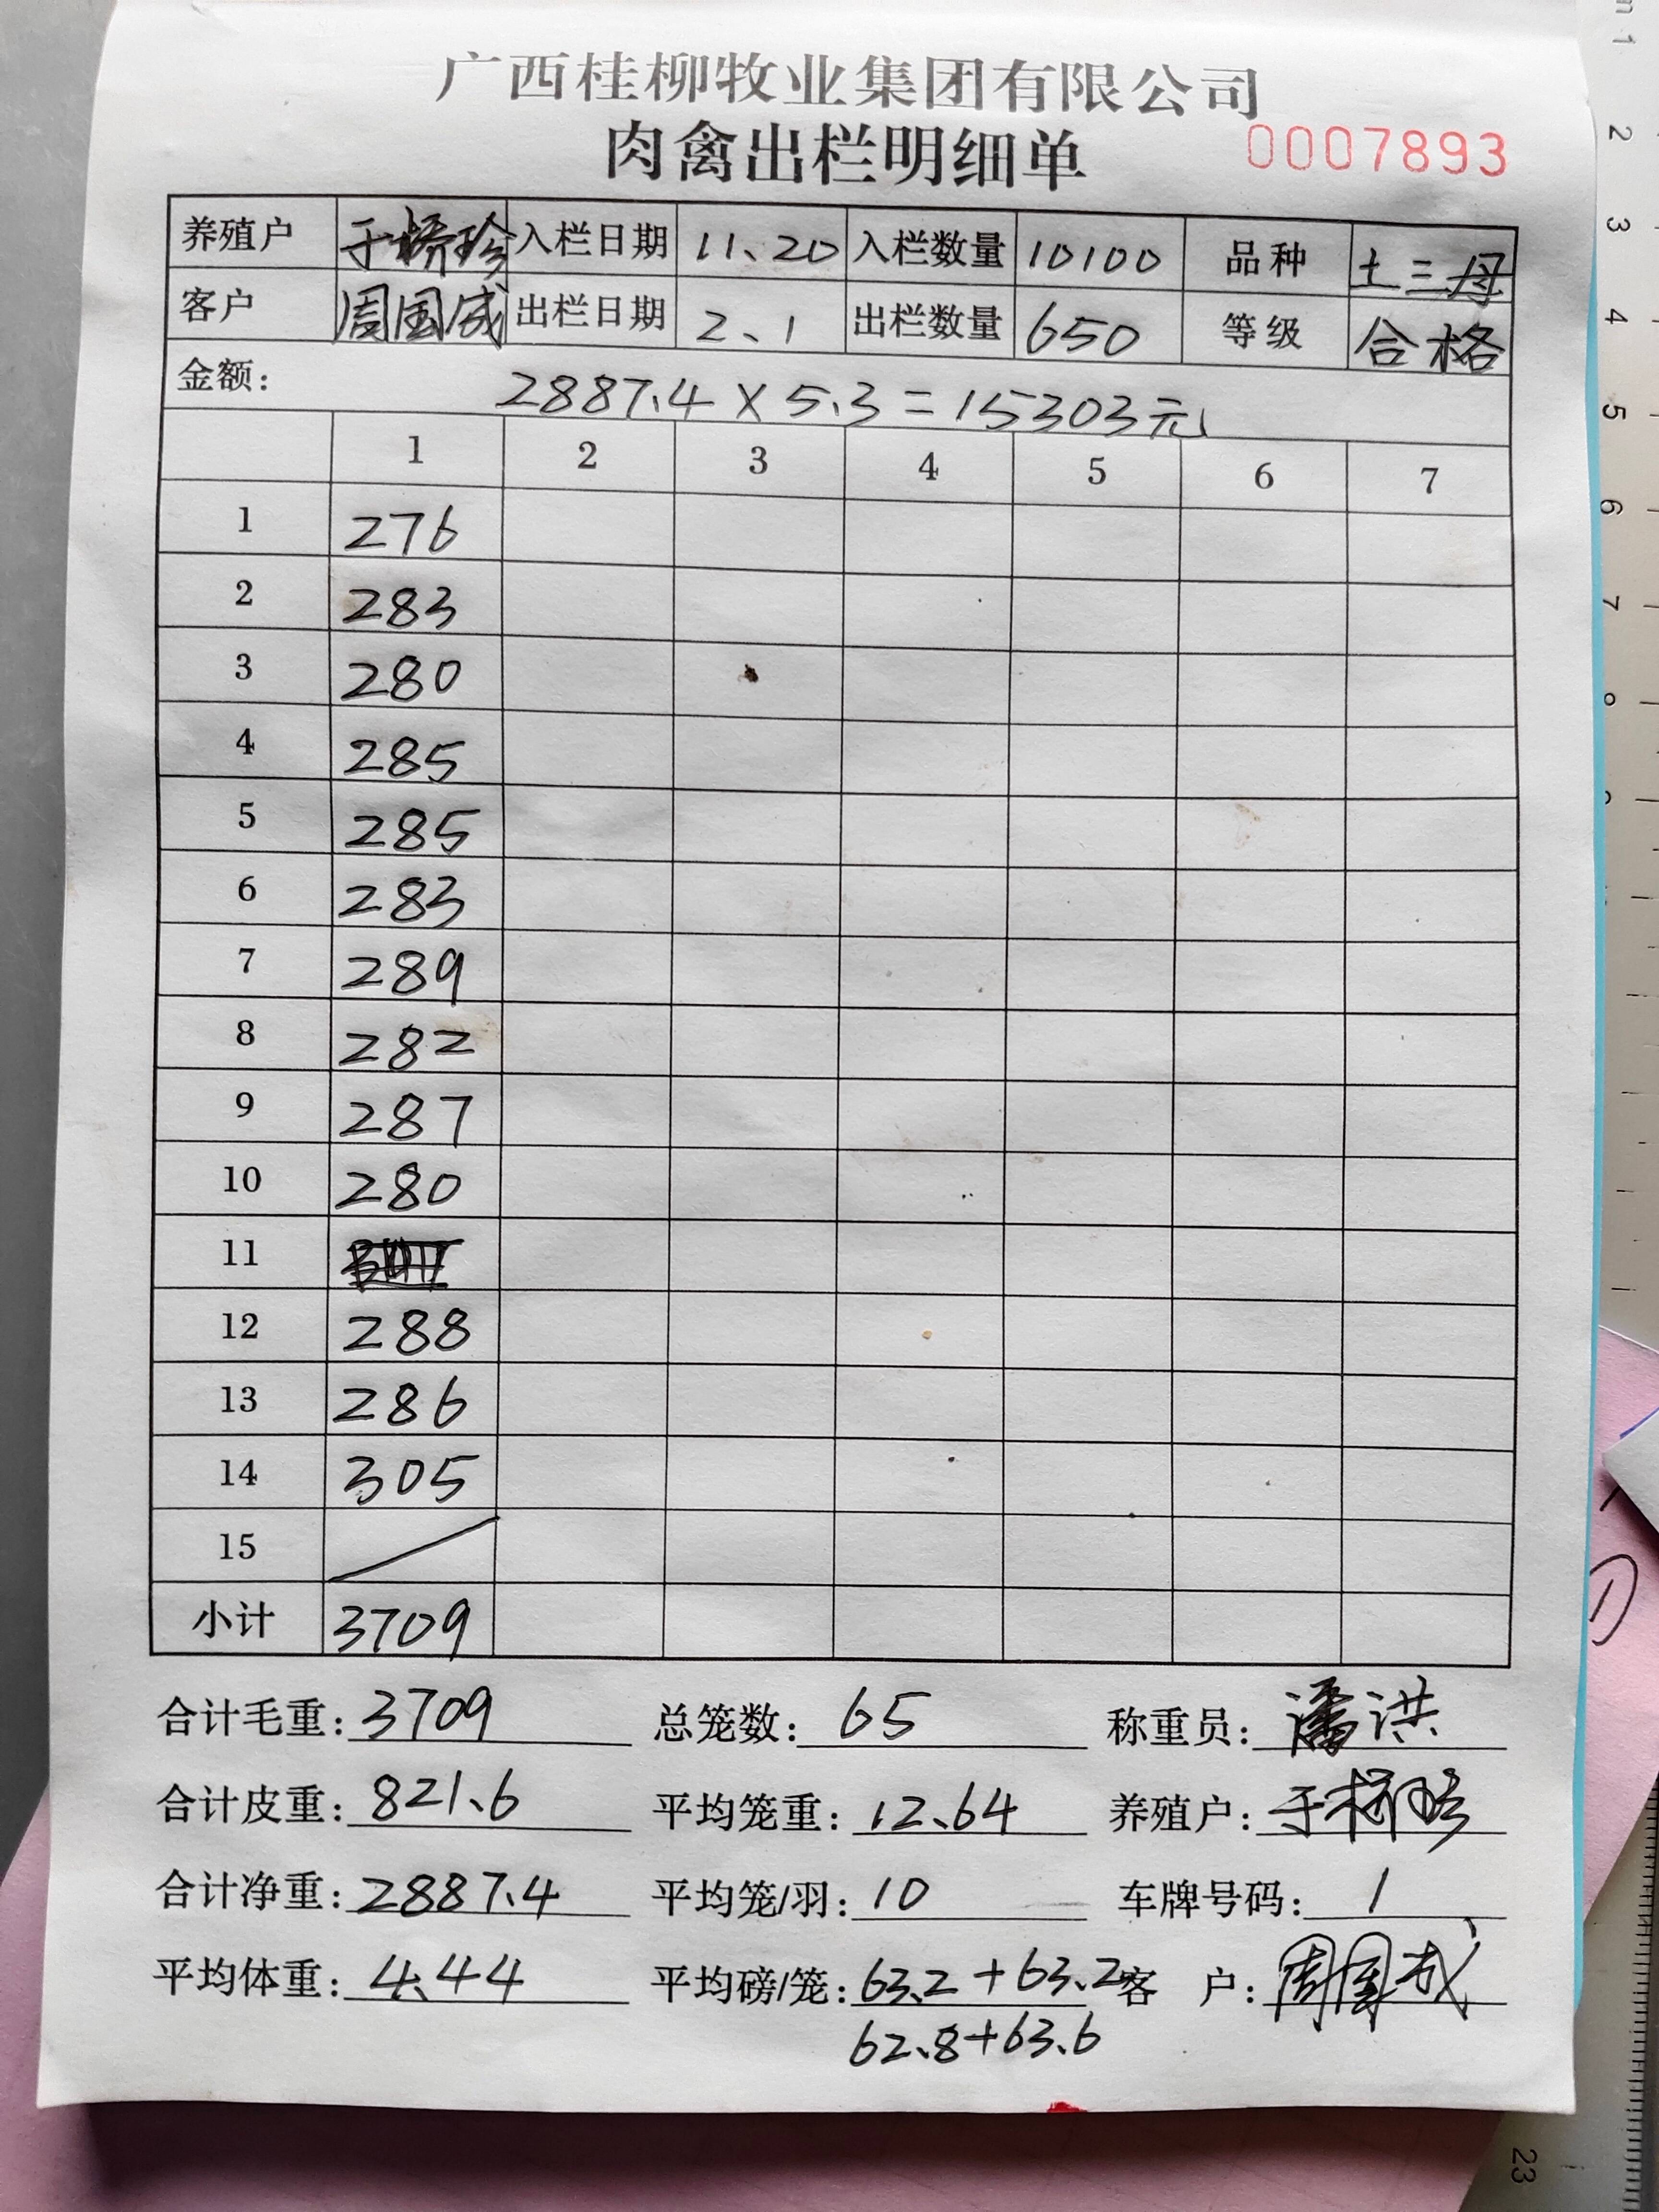 广西桂柳牧业集团有限公司
肉禽出栏明细单 0007893
养殖户 于桥珍 入栏日期 11、20 入栏数量 10100 品种 土三母
客户 周国成 出栏日期 2、1 出栏数量 650 等级 合格
金额: 2887.4×5.3=15303元
1 2 3 4 5 6 7
1 276
2 283
3 280
4 285
5 285
6 283
7 289
8 282
9 287
10 280
11
12 288
13 286
14 305
15
小计 3709
合计毛重: 3709 总笼数: 65 称重员: 潘洪
合计皮重: 821.6 平均笼重: 12.64 养殖户: 于桥珍
合计净重: 2887.4 平均笼/羽: 10 车牌号码: 1
平均体重: 4.44 平均磅/笼: 63.2+63.2 客 户: 周国成
62.8+63.6